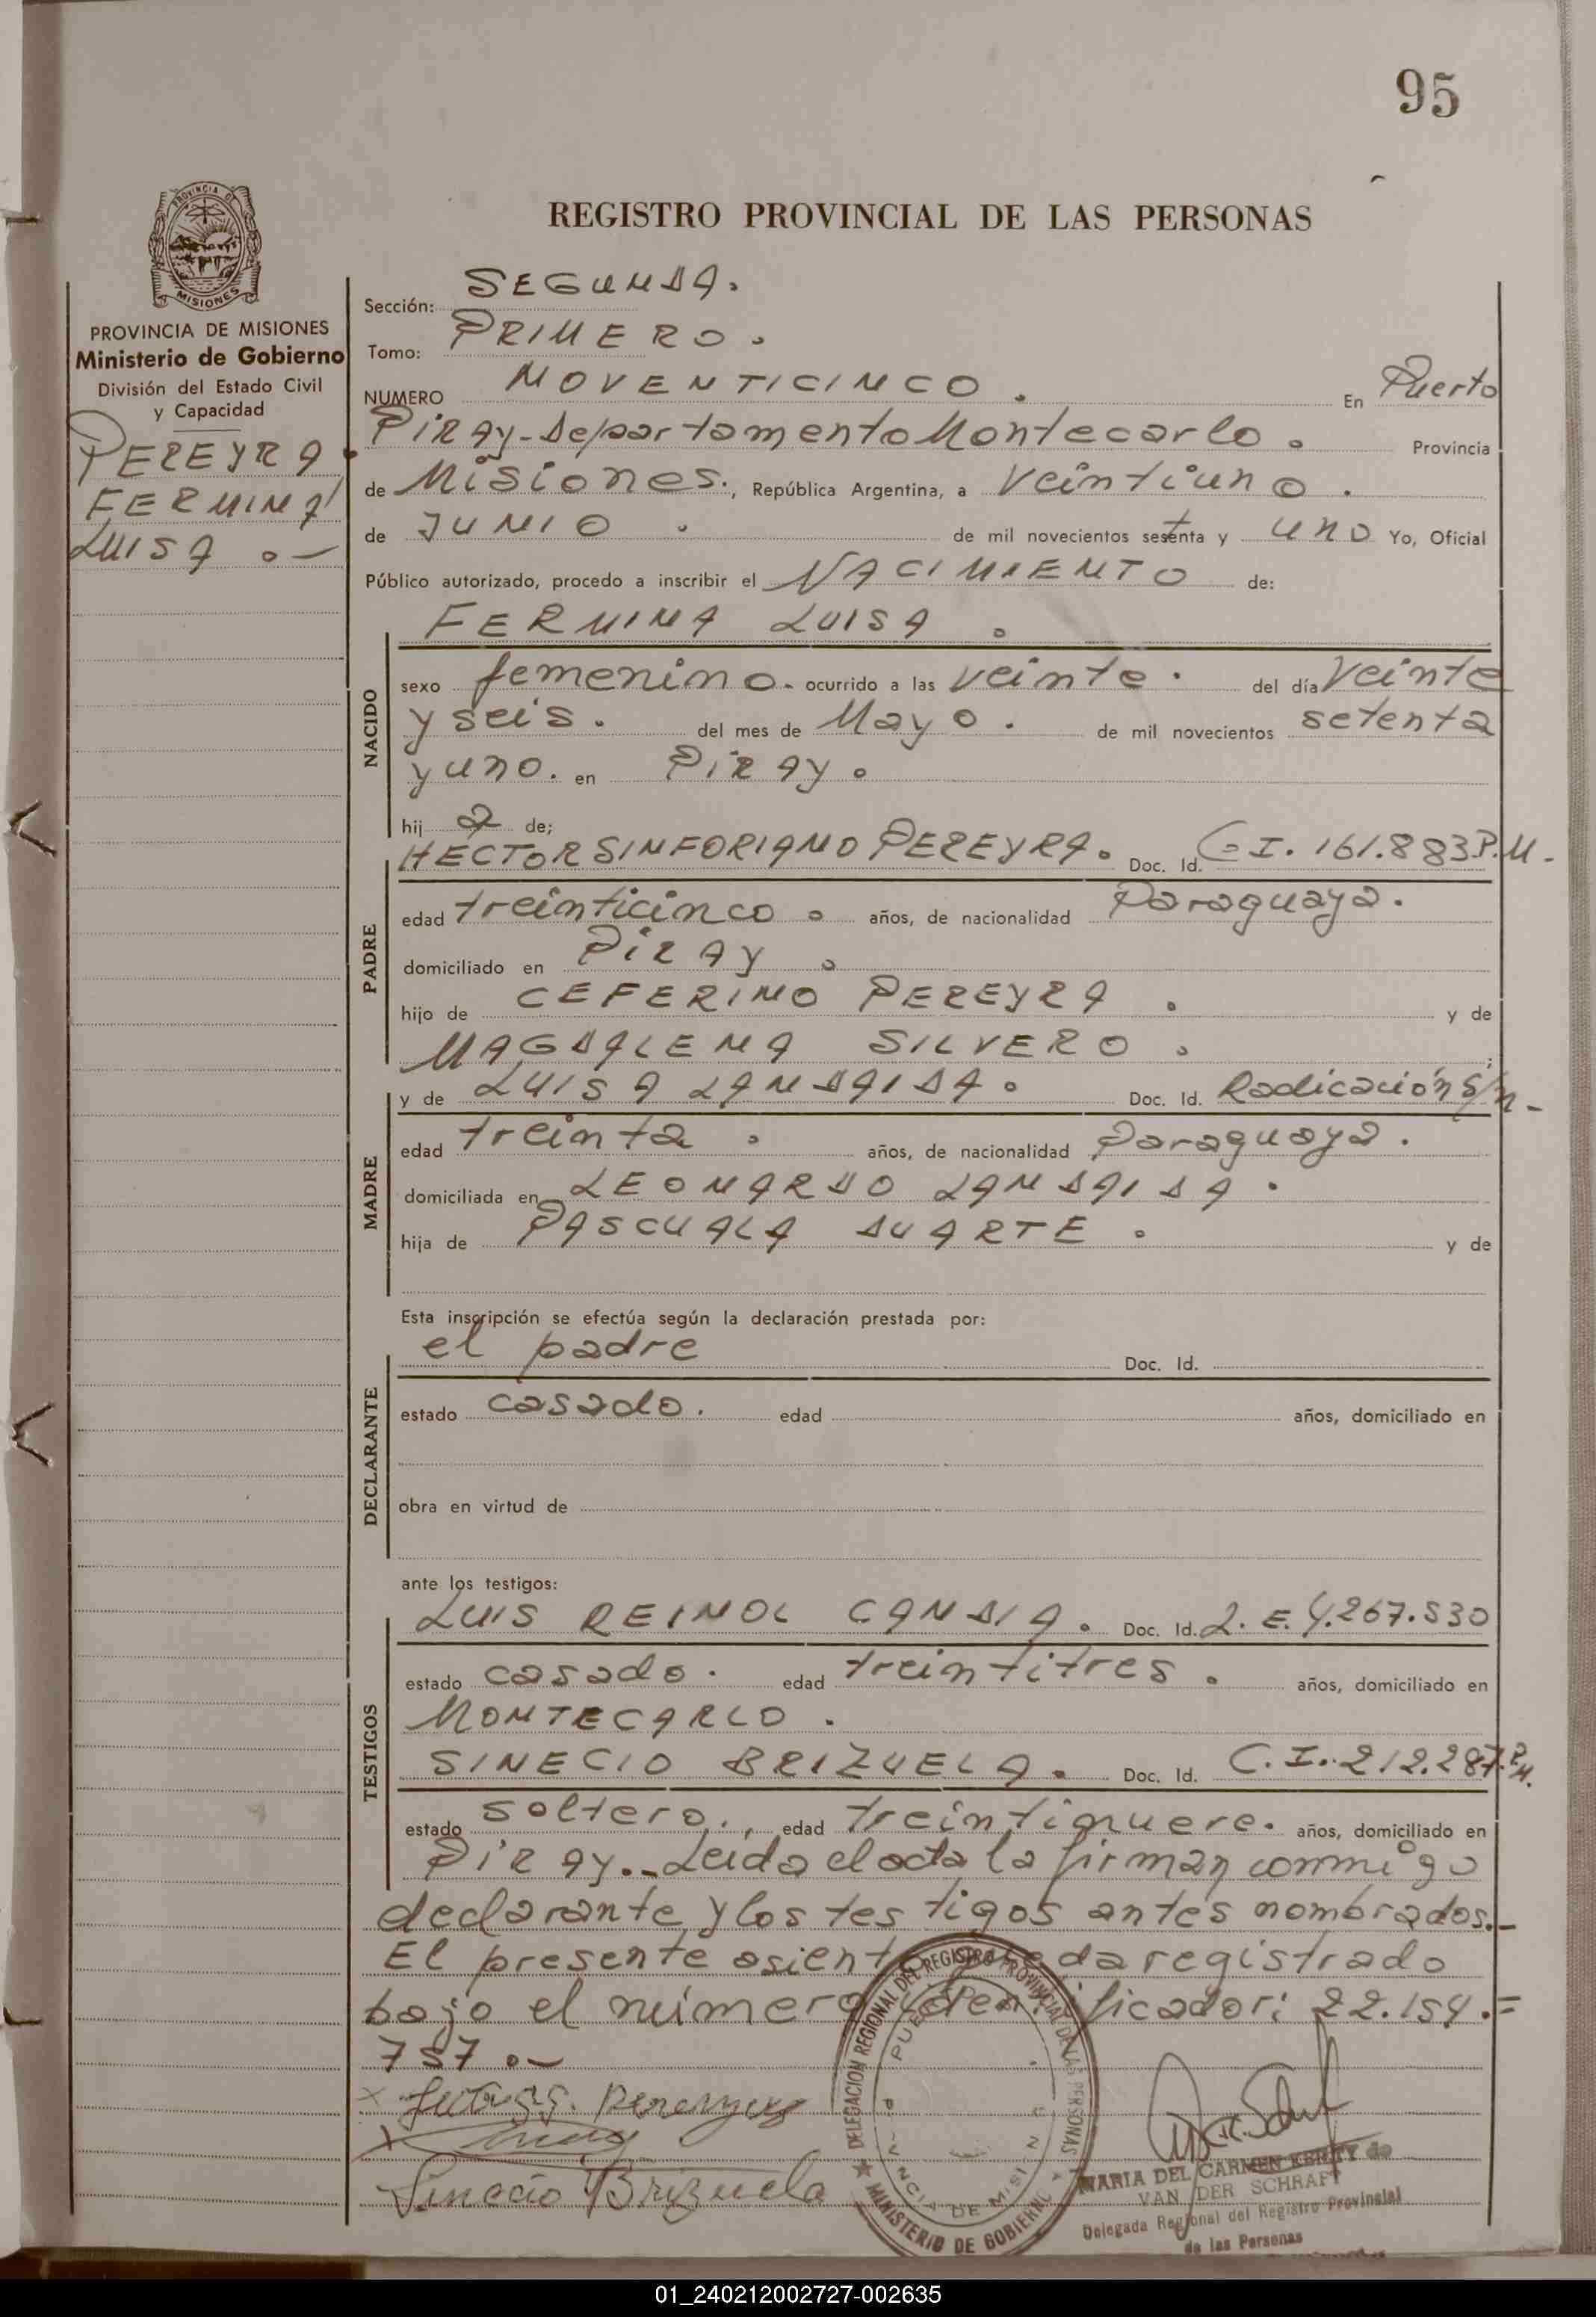 95
REGISTRO PROVINCIAL DE LAS PERSONAS
PROVINCIA DE
MISIONES
PROVINCIA DE MISIONES
Ministerio de Gobierno
División del Estado Civil
y Capacidad
PEREYRA
FERMINA
LUISA .-
Sección: SEGUNDA.
Tomo: PRIMERO.
NUMERO NOVENTICINCO. En Puerto
Piray-Departamento Montecarlo. Provincia
de Misiones., República Argentina, a veintiuno.
de JUNIO. de mil novecientos setenta y uno Yo, Oficial
Público autorizado, procedo a inscribir el NACIMIENTO de:
FERMINA LUISA.
NACIDO
sexo femenino. ocurrido a las veinte. del día veinte
y seis. del mes de Mayo. de mil novecientos setenta
y uno. en Piray.
hij a de;
HECTOR SINFORIANO PEREYRA. Doc. Id. C.I. 161.883 P.M.
PADRE
edad treinticinco. años, de nacionalidad Paraguaya.
domiciliado en Piray.
hijo de CEFERINO PEREYRA. y de
MAGDALENA SILVERO.
y de LUISA LANDAIDA. Doc. Id. Radicación S/n.-
MADRE
edad treinta. años, de nacionalidad Paraguaya.
domiciliada en LEONARDO LANDAIDA.
hija de PASCUALA DUARTE. y de
Esta inscripción se efectúa según la declaración prestada por:
el padre Doc. Id.
DECLARANTE
estado casado. edad años, domiciliado en
obra en virtud de
ante los testigos:
LUIS REINOL CANDIA. Doc. Id. L.E. 4.267.530
TESTIGOS
estado casado. edad treintitres. años, domiciliado en
MONTECARLO.
SINECIO BRIZUELA. Doc. Id. C.I. 212.287 P.M.
estado soltero. edad treintinueve. años, domiciliado en
Piray.- Leida el acta la firman conmigo
declarante y los testigos antes nombrados.-
El presente asiento queda registrado
bajo el número identificador: 22.154.=
757.-
Sinecio Brizuela
DELEGACION REGIONAL DEL REGISTRO PROVINCIAL DE LAS PERSONAS
MINISTERIO DE GOBIERNO
PROVINCIA DE MISIONES
MARIA DEL CARMEN de
VAN DER SCHRAFT
Delegada Regional del Registro Provincial
de las Personas
01_240212002727-002635